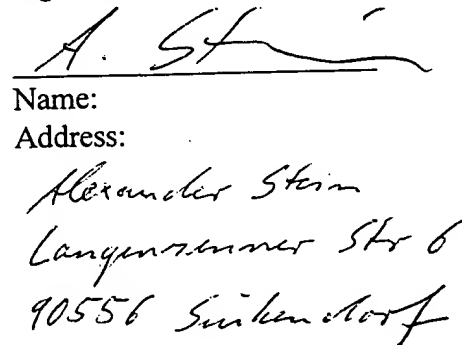 A. Stein
Name:
Address:
Alexander Stein
Langenzenner Str 6
90556 Seukendorf